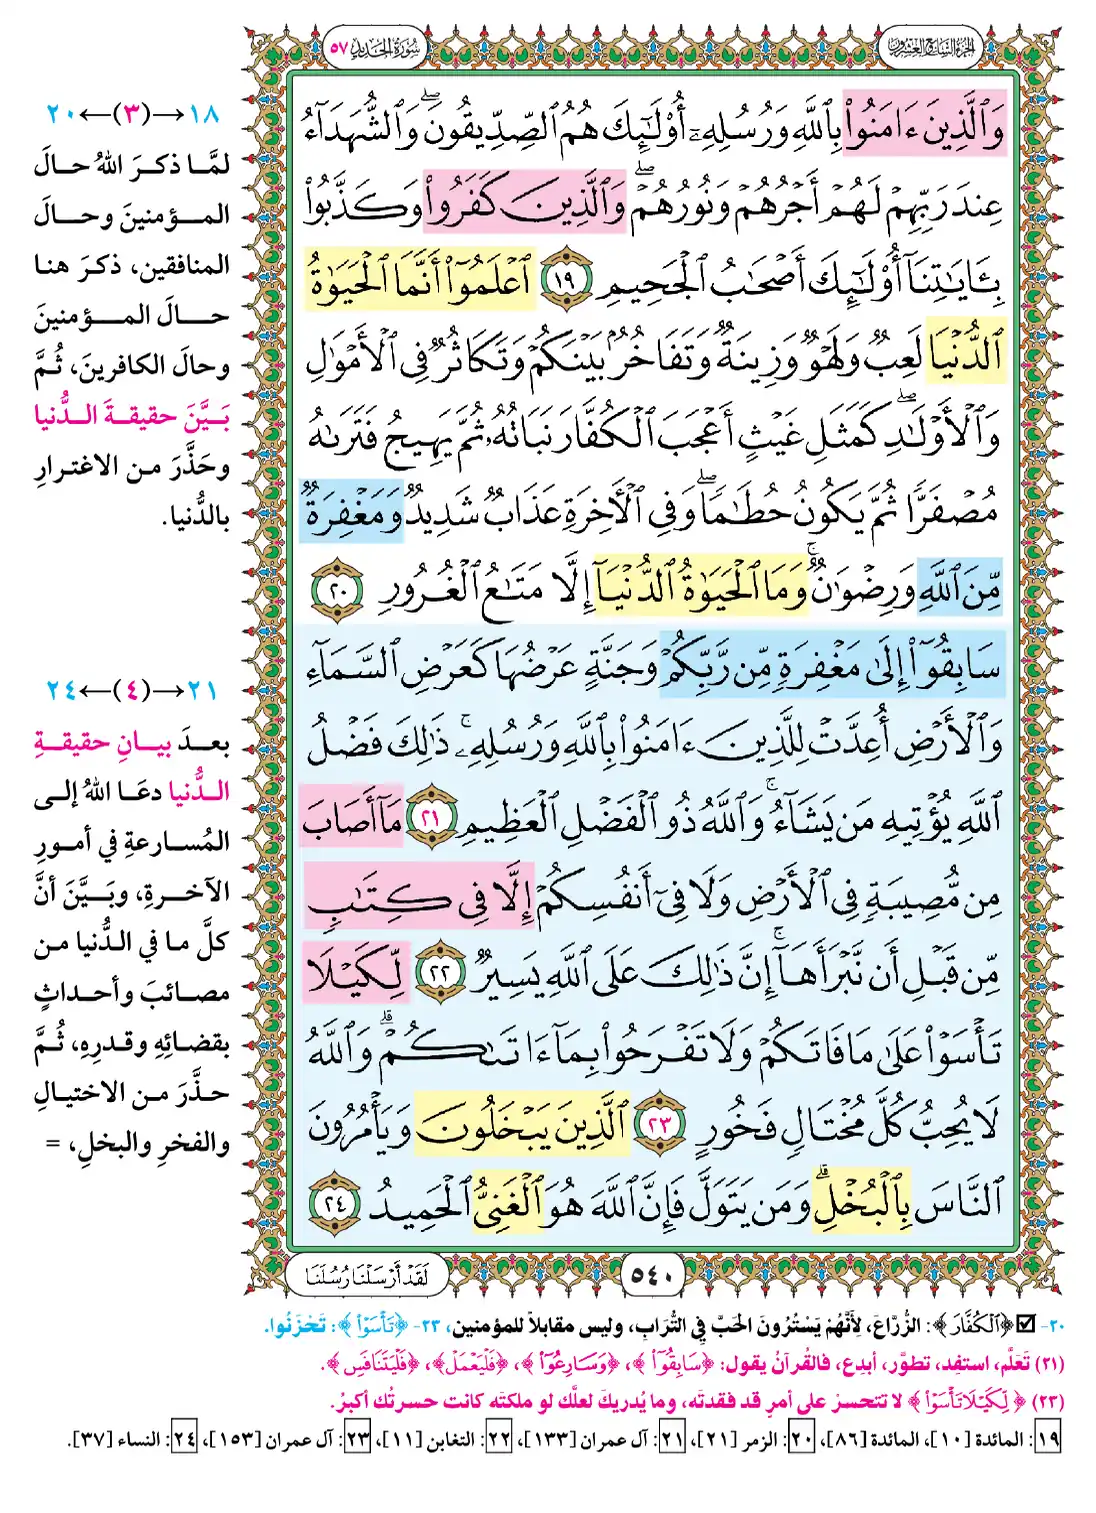 الجزء السابع والعشرون
سورة الحديد ٥٧
وَٱلَّذِينَ ءَامَنُوا۟ بِٱللَّهِ وَرُسُلِهِۦٓ أُو۟لَٰٓئِكَ هُمُ ٱلصِّدِّيقُونَ ۖ وَٱلشُّهَدَآءُ
عِندَ رَبِّهِمْ لَهُمْ أَجْرُهُمْ وَنُورُهُمْ ۖ وَٱلَّذِينَ كَفَرُوا۟ وَكَذَّبُوا۟
بِـَٔايَٰتِنَآ أُو۟لَٰٓئِكَ أَصْحَٰبُ ٱلْجَحِيمِ ١٩ ٱعْلَمُوٓا۟ أَنَّمَا ٱلْحَيَوٰةُ
ٱلدُّنْيَا لَعِبٌ وَلَهْوٌ وَزِينَةٌ وَتَفَاخُرٌۢ بَيْنَكُمْ وَتَكَاثُرٌ فِى ٱلْأَمْوَٰلِ
وَٱلْأَوْلَٰدِ ۖ كَمَثَلِ غَيْثٍ أَعْجَبَ ٱلْكُفَّارَ نَبَاتُهُۥ ثُمَّ يَهِيجُ فَتَرَىٰهُ
مُصْفَرًّا ثُمَّ يَكُونُ حُطَٰمًا ۖ وَفِى ٱلْءَاخِرَةِ عَذَابٌ شَدِيدٌ وَمَغْفِرَةٌ
مِّنَ ٱللَّهِ وَرِضْوَٰنٌ ۚ وَمَا ٱلْحَيَوٰةُ ٱلدُّنْيَآ إِلَّا مَتَٰعُ ٱلْغُرُورِ ٢٠
سَابِقُوٓا۟ إِلَىٰ مَغْفِرَةٍ مِّن رَّبِّكُمْ وَجَنَّةٍ عَرْضُهَا كَعَرْضِ ٱلسَّمَآءِ
وَٱلْأَرْضِ أُعِدَّتْ لِلَّذِينَ ءَامَنُوا۟ بِٱللَّهِ وَرُسُلِهِۦ ۚ ذَٰلِكَ فَضْلُ
ٱللَّهِ يُؤْتِيهِ مَن يَشَآءُ ۚ وَٱللَّهُ ذُو ٱلْفَضْلِ ٱلْعَظِيمِ ٢١ مَآ أَصَابَ
مِن مُّصِيبَةٍ فِى ٱلْأَرْضِ وَلَا فِىٓ أَنفُسِكُمْ إِلَّا فِى كِتَٰبٍ
مِّن قَبْلِ أَن نَّبْرَأَهَآ ۚ إِنَّ ذَٰلِكَ عَلَى ٱللَّهِ يَسِيرٌ ٢٢ لِّكَيْلَا
تَأْسَوْا۟ عَلَىٰ مَا فَاتَكُمْ وَلَا تَفْرَحُوا۟ بِمَآ ءَاتَىٰكُمْ ۗ وَٱللَّهُ
لَا يُحِبُّ كُلَّ مُخْتَالٍ فَخُورٍ ٢٣ ٱلَّذِينَ يَبْخَلُونَ وَيَأْمُرُونَ
ٱلنَّاسَ بِٱلْبُخْلِ ۗ وَمَن يَتَوَلَّ فَإِنَّ ٱللَّهَ هُوَ ٱلْغَنِىُّ ٱلْحَمِيدُ ٢٤
٥٤٠
لَقَدْ أَرْسَلْنَا رُسُلَنَا
١٨→(٣)←٢٠
لمَّا ذكرَ اللهُ حالَ
المؤمنينَ وحالَ
المنافقين، ذكرَ هنا
حالَ المؤمنينَ
وحالَ الكافرينَ، ثُمَّ
بَيَّنَ حقيقةَ الدُّنيا
وحَذَّرَ من الاغترارِ
بالدُّنيا.
٢١→(٤)←٢٤
بعدَ بيانِ حقيقةِ
الدُّنيا دعَا اللهُ إلى
المُسارعةِ في أمورِ
الآخرةِ، وبَيَّنَ أنَّ
كلَّ ما في الدُّنيا من
مصائبَ وأحداثٍ
بقضائِهِ وقدرِهِ، ثُمَّ
حذَّرَ من الاختيالِ
والفخرِ والبخلِ، =
٢٠- ☑ ﴿ٱلْكُفَّارَ﴾: الزُّرَّاعَ، لِأَنَّهُمْ يَسْتُرُونَ الحَبَّ فِي التُّرَابِ، وليس مقابلاً للمؤمنين، ٢٣- ﴿تَأْسَوْا۟﴾: تَحْزَنُوا.
(٢١) تَعَلَّم، استفِد، تطوَّر، أبدِع، فالقُرآنُ يقول: ﴿سَابِقُوٓا۟﴾، ﴿وَسَارِعُوٓا۟﴾، ﴿فَلْيَعْمَلْ﴾، ﴿فَلْيَتَنَافَسِ﴾.
(٢٣) ﴿لِّكَيْلَا تَأْسَوْا۟﴾ لا تتحسرْ على أمرٍ قد فقدتَه، وما يُدريكَ لعلَّك لو ملكتَه كانت حسرتُك أكبرُ.
١٩: المائدة [١٠]، المائدة [٨٦]، ٢٠: الزمر [٢١]، ٢١: آل عمران [١٣٣]، ٢٢: التغابن [١١]، ٢٣: آل عمران [١٥٣]، ٢٤: النساء [٣٧].